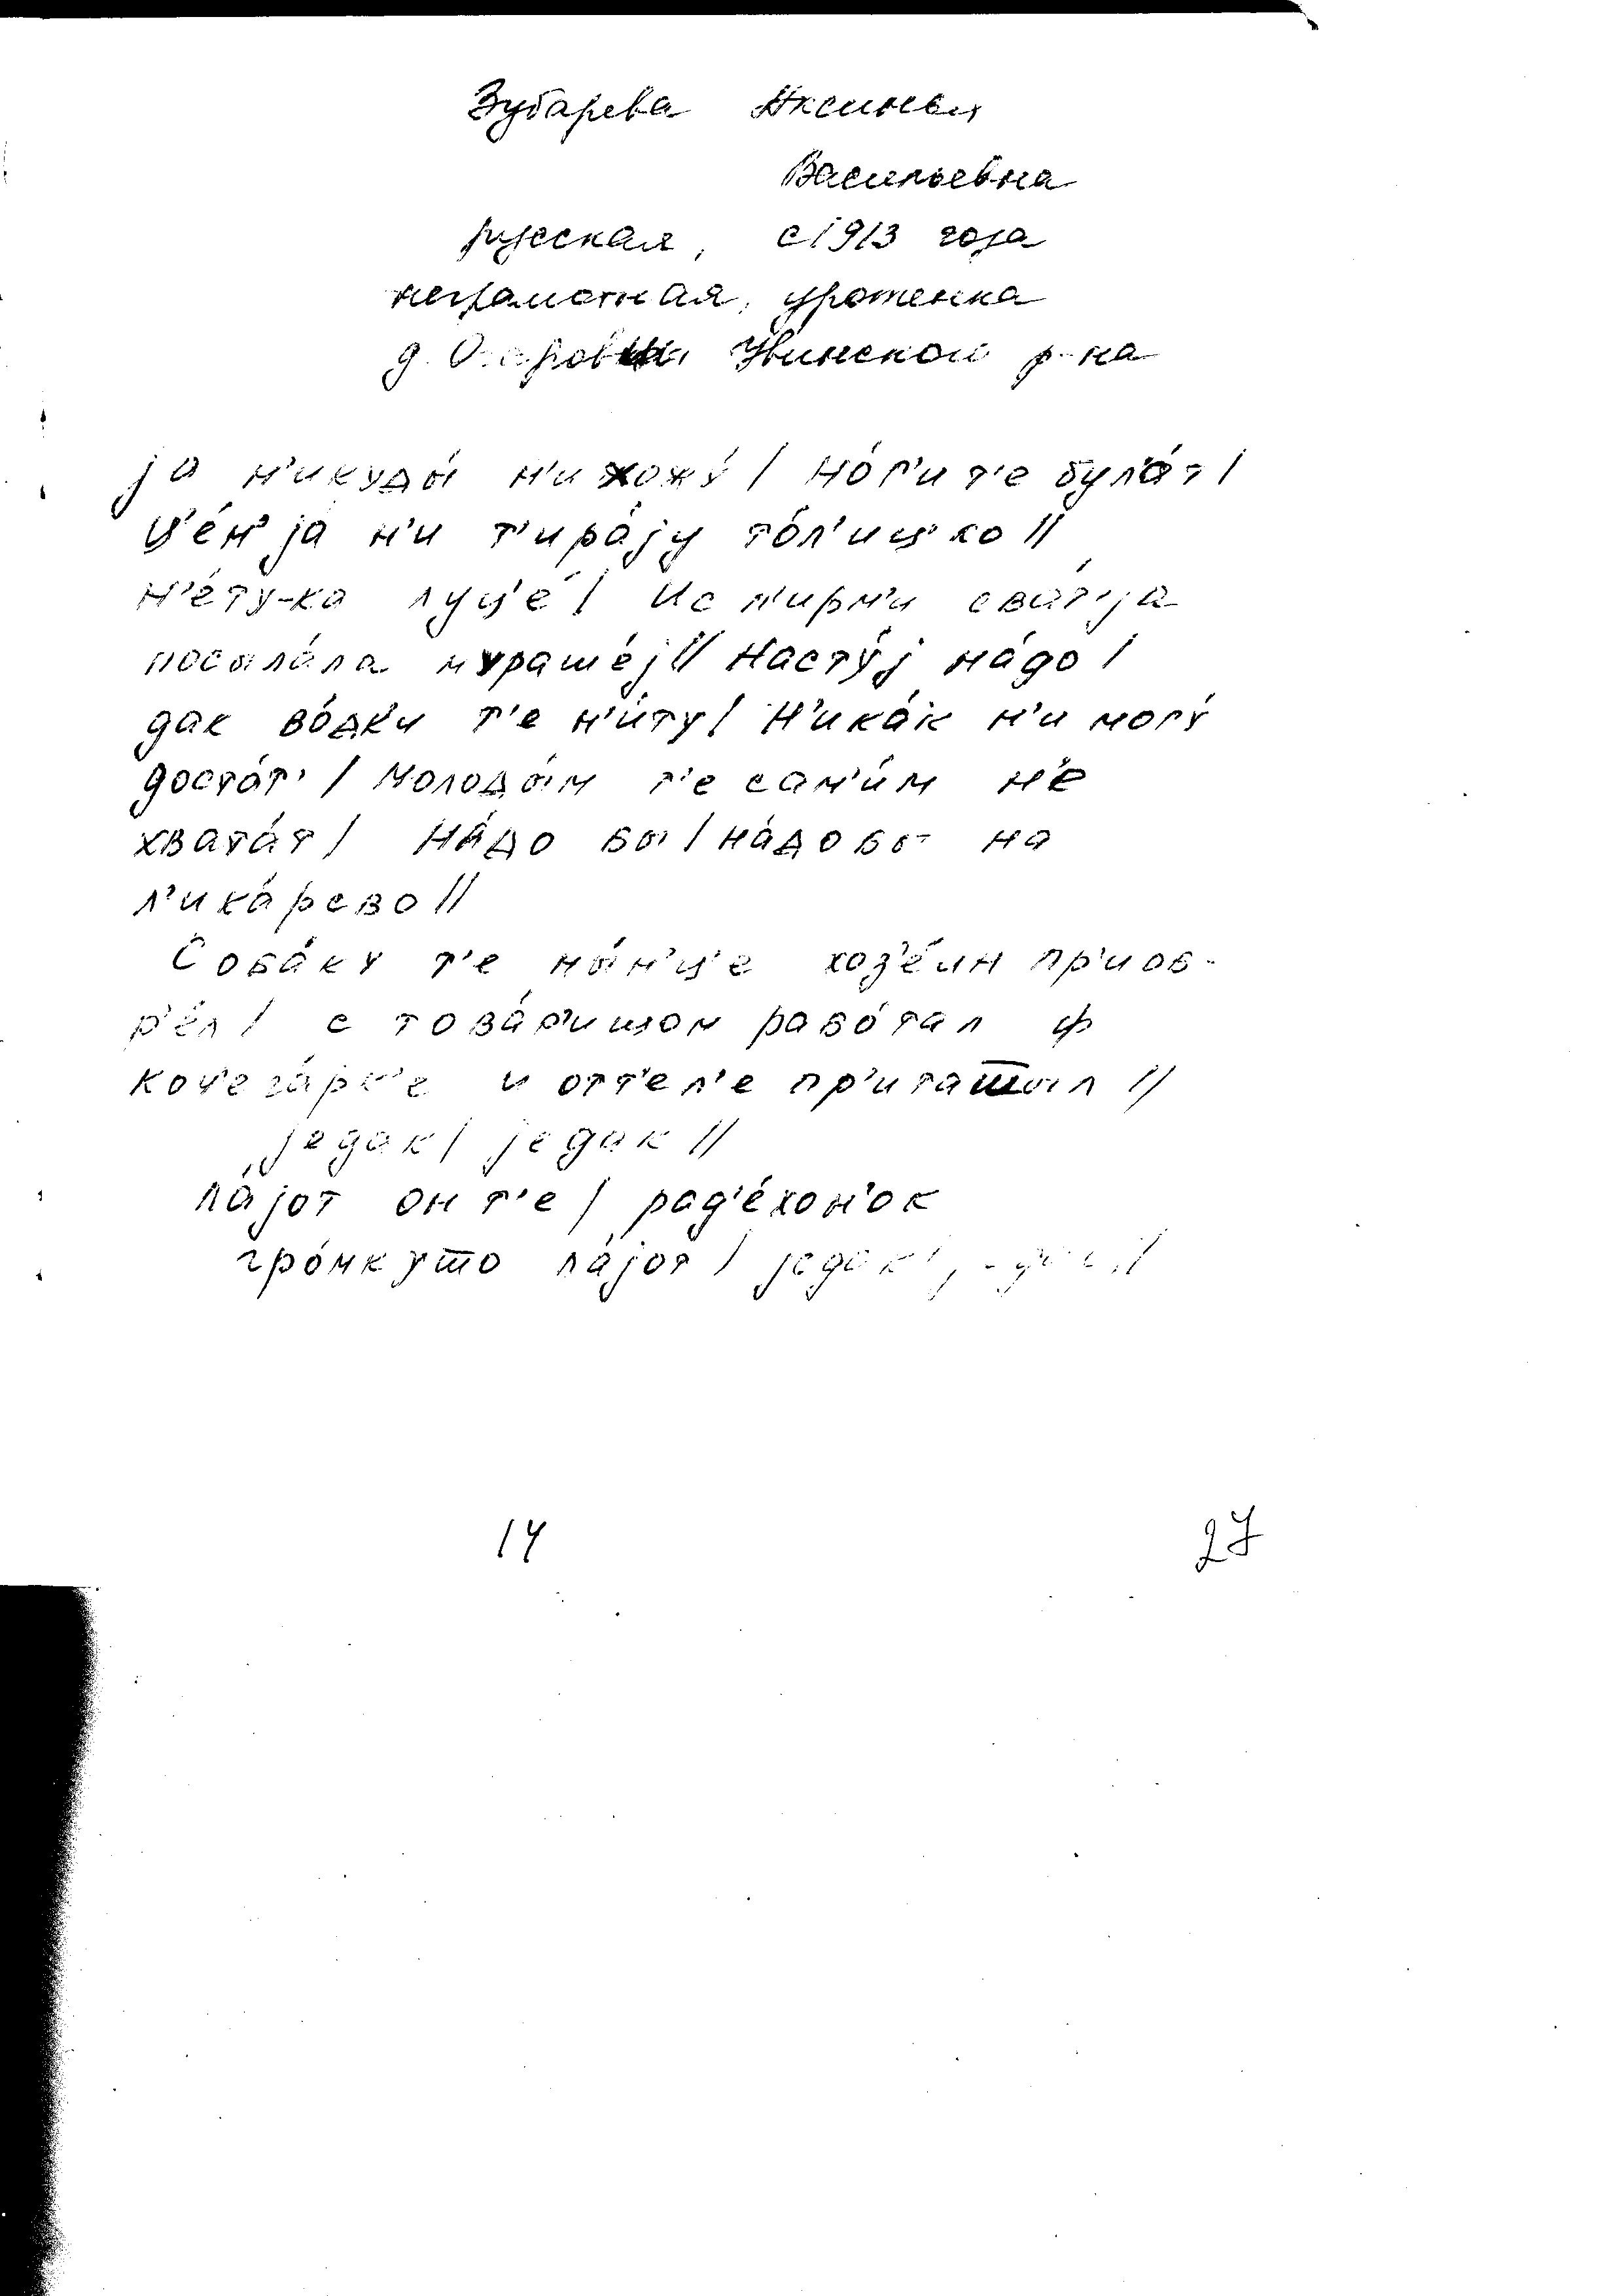 Зубарева Аксинья
Васильевна
русская, с 1913 года
неграмотная, уроженка
д. Увинской р-на
ја н'икуды́ н'и хожу́ / но́г'и т'е бул'а́т /
ц'ем' ја н'и т'ира́ју то́л'ицко //
н'е́ту-ка луц'е / Ис п'ирм'и сва́т'ја
посыла́ла мураше́ј // Насту́ј на́до /
дак во́дк'и т'е н'и́ту / Н'ика́к н'и могу́
доста́т' / Молоды́м т'е сам'и́м н'е
хвата́т / На́до бы / на́до бы на
л'ика́рево //
Соба́ку т'е ны́н'ц'е хоз'е́ин пр'иоб-
р'ёл / с това́р'ишом рабо́тал ф
коч'ега́рк'е и отт'ел'е пр'иташыл //
једак / једак //
ла́јот он т'е / рад'е́хон'ок
гро́мкушо ла́јот / једак
14 27